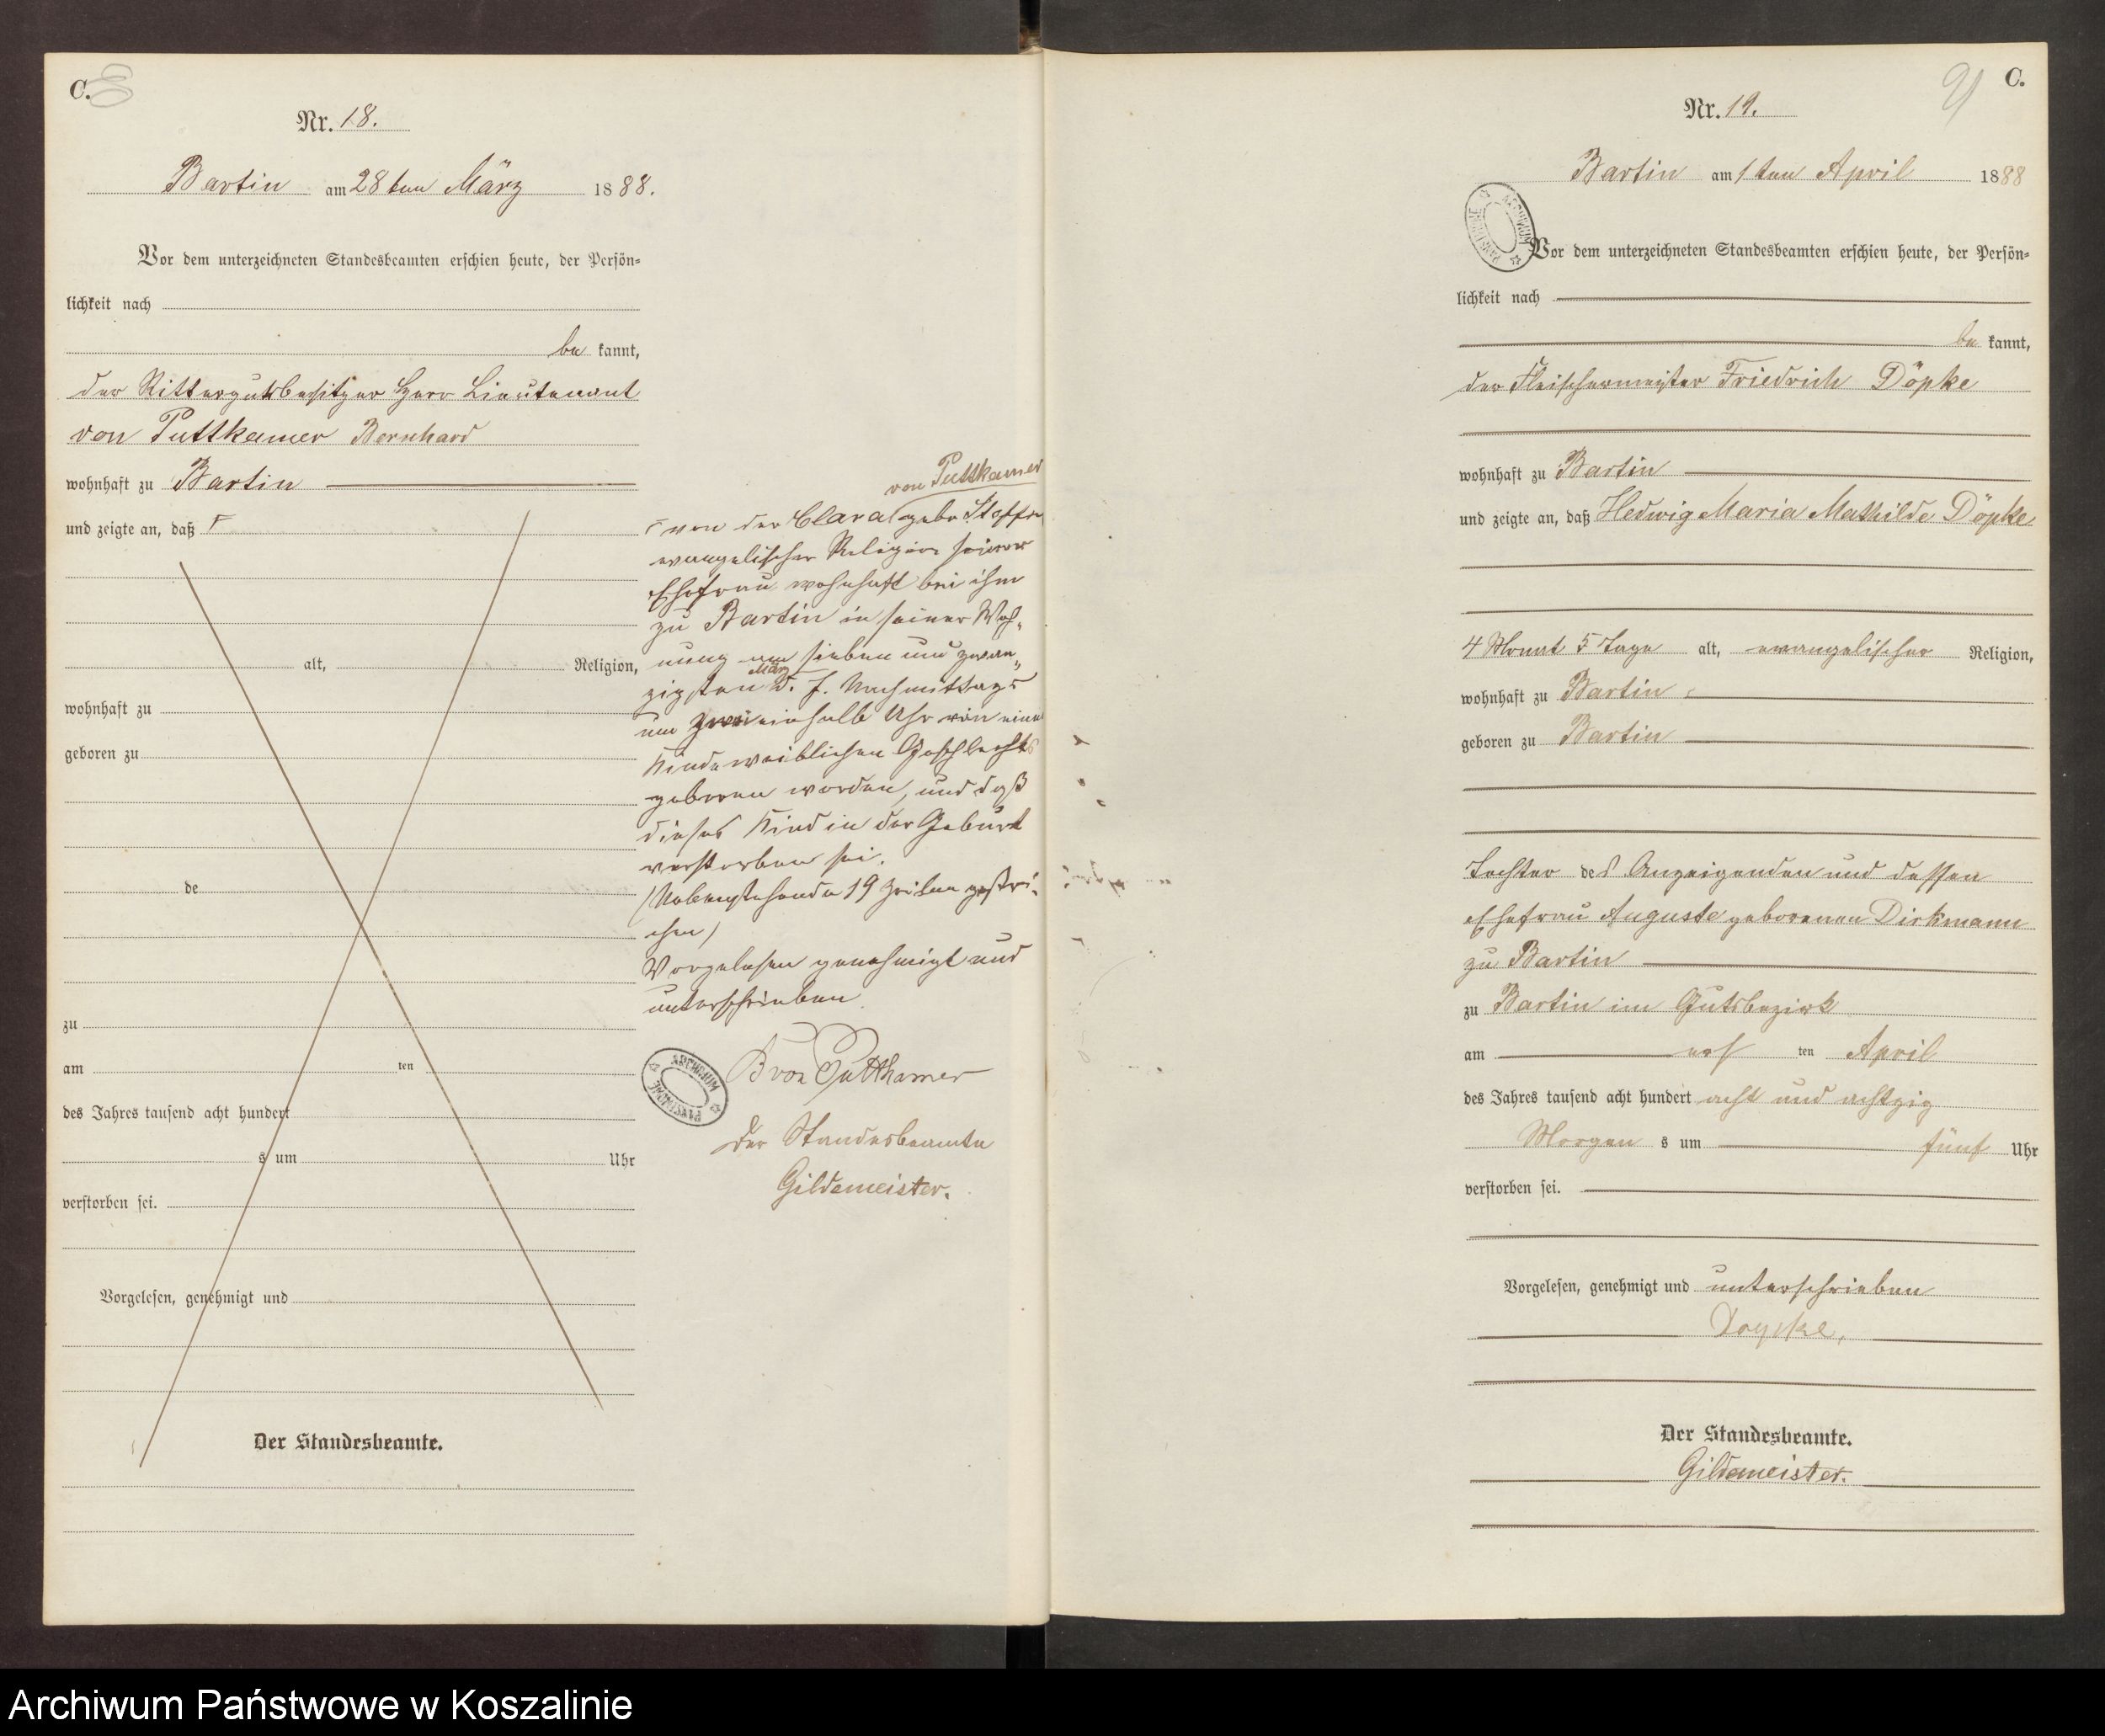 C.
Nr. 18.
Bartin am 28ten März 1888.
Vor dem unterzeichneten Standesbeamten erschien heute, der Persön-
lichkeit nach
be kannt,
der Rittergutsbesitzer Herr Lieutenant
von Puttkamer Bernhard
wohnhaft zu Bartin
und zeigte an, daß
alt, Religion,
wohnhaft zu
geboren zu
de
zu
am ten
des Jahres tausend acht hundert
s um Uhr
verstorben sei.
Vorgelesen, genehmigt und
Der Standesbeamte.
von Puttkamer
von der Clara gebr.
evangelischer Religion seiner
Ehefrau wohnhaft bei ihm
zu Bartin in seiner Woh-
nung am sieben und zwan-
März
zigsten d. J. Nachmittags
um zwei einhalb Uhr von einem
Kinde weiblichen Geschlechts
geboren worden, und daß
dieses Kind in der Geburt
verstorben sei.
(Nebenstehende 19 Zeilen gestri-
chen)
Vorgelesen genehmigt und
unterschrieben.
B von Puttkamer
ARCHIWUM PAŃSTWOWE
Der Standesbeamte
Gildemeister.
C.
91
Nr. 19.
Bartin am 1ten April 1888
ARCHIWUM PAŃSTWOWE
Vor dem unterzeichneten Standesbeamten erschien heute, der Persön-
lichkeit nach
be kannt,
der Fleischermeister Friedrich Döpke
wohnhaft zu Bartin
und zeigte an, daß Hedwig Maria Mathilde Döpke
4 Monat 5 Tage alt, evangelischer Religion,
wohnhaft zu Bartin
geboren zu Bartin
Tochter des Anzeigenden und dessen
Ehefrau Auguste geborenen Dickmann
zu Bartin
zu Bartin im Gutsbezirk
am ers ten April
des Jahres tausend acht hundert acht und achtzig
Morgen s um fünf Uhr
verstorben sei.
Vorgelesen, genehmigt und unterschrieben
Der Standesbeamte.
Gildemeister.
Archiwum Państwowe w Koszalinie